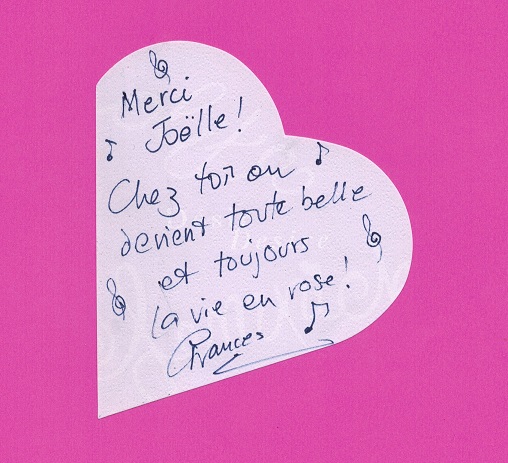 Merci
Joëlle!
Chez toi on
devient toute belle
et toujours
la vie en rose!
Frances